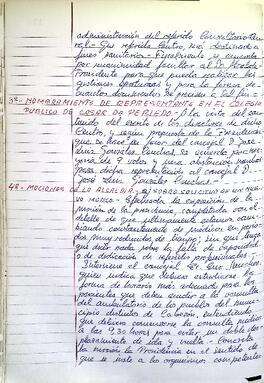 administración del referido Consultorio
- Que referido Centro será destinado a
fines sanitarios - Finalmente se acuerda
por unanimidad facultar al Sr. Alcalde-
Presidente para que pueda realizar las
gestiones oportunas y para la firma de
cuantos documentos se precisen a tal fin.-
3º- NOMBRAMIENTO DE REPRESENTANTE EN EL COLEGIO
PUBLICO DE CASAR DE PERIEDO.- A la vista del con-
tenido del escrito de los directora de dicho
Centro, y según propuesta de la Presidencia
que lo hace en favor del concejal D. José
Luis González se acuerda por ma-
yoría de 9 votos y una abstención nombrar
para dicha representación al concejal D.
José Luis González
4º- MOCIONES DE LA ALCALDIA.- a) SOBRE SOLICITUD DE UN NUE-
VO MEDICO - Efectuada la exposición de la
moción de la presidencia, completada con el
detalle de que últimamente estamos cam-
biando constantemente de médicos en perio-
dos muy reducidos de tiempo, sin que haya
que decir nada sobre la falta de capacidad
o de dedicación de referidos profesionales.-
Interviene el concejal Sr.
quien indica que debiera estudiarse la
forma de horario más adecuada para los
pacientes que deben acudir a la consulta
del ambulatorio de los pueblos del muni-
cipio distintos de Cabezón, entendiendo
que debiera comenzarse la consulta médica
a las 9,30 horas para evitar un doble des-
plazamiento de ida y vuelta - Concreta
la moción la Presidencia en el sentido de
que se inste a los organismos competentes